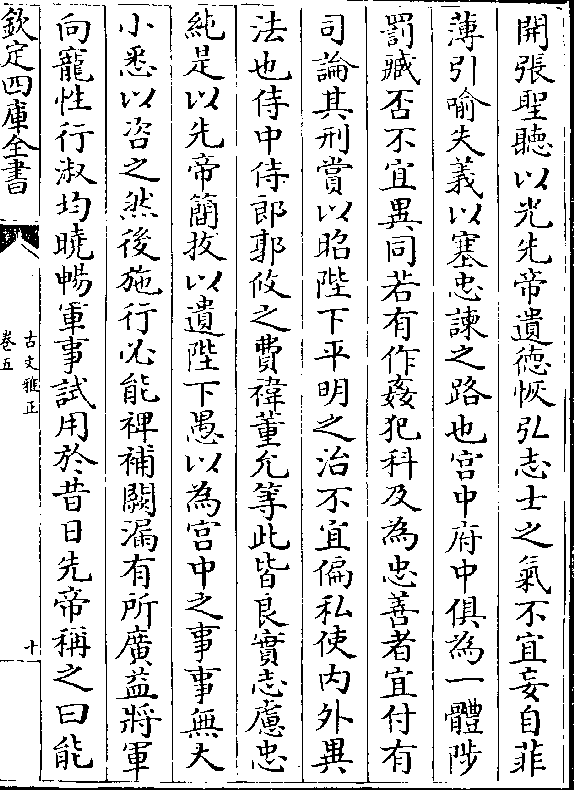 開張聖聽以光先帝遺德恢弘志士之氣不宜妄自菲
薄引喻失義以塞忠諫之路也宫中府中俱為一體陟
罰臧否不宜異同若有作姦犯科及為忠善者宜付有
司論其刑賞以昭陛下平明之治不宜偏私使内外異
法也侍中侍郎郭攸之費禕董允等此皆良實志慮忠
純是以先帝簡拔以遺陛下愚以為宫中之事事無大
小悉以咨之然後施行必能裨補闕漏有所廣益將軍
向寵性行淑均曉暢軍事試用於昔日先帝稱之曰能
欽定四庫全書
古文雅正
卷五
十